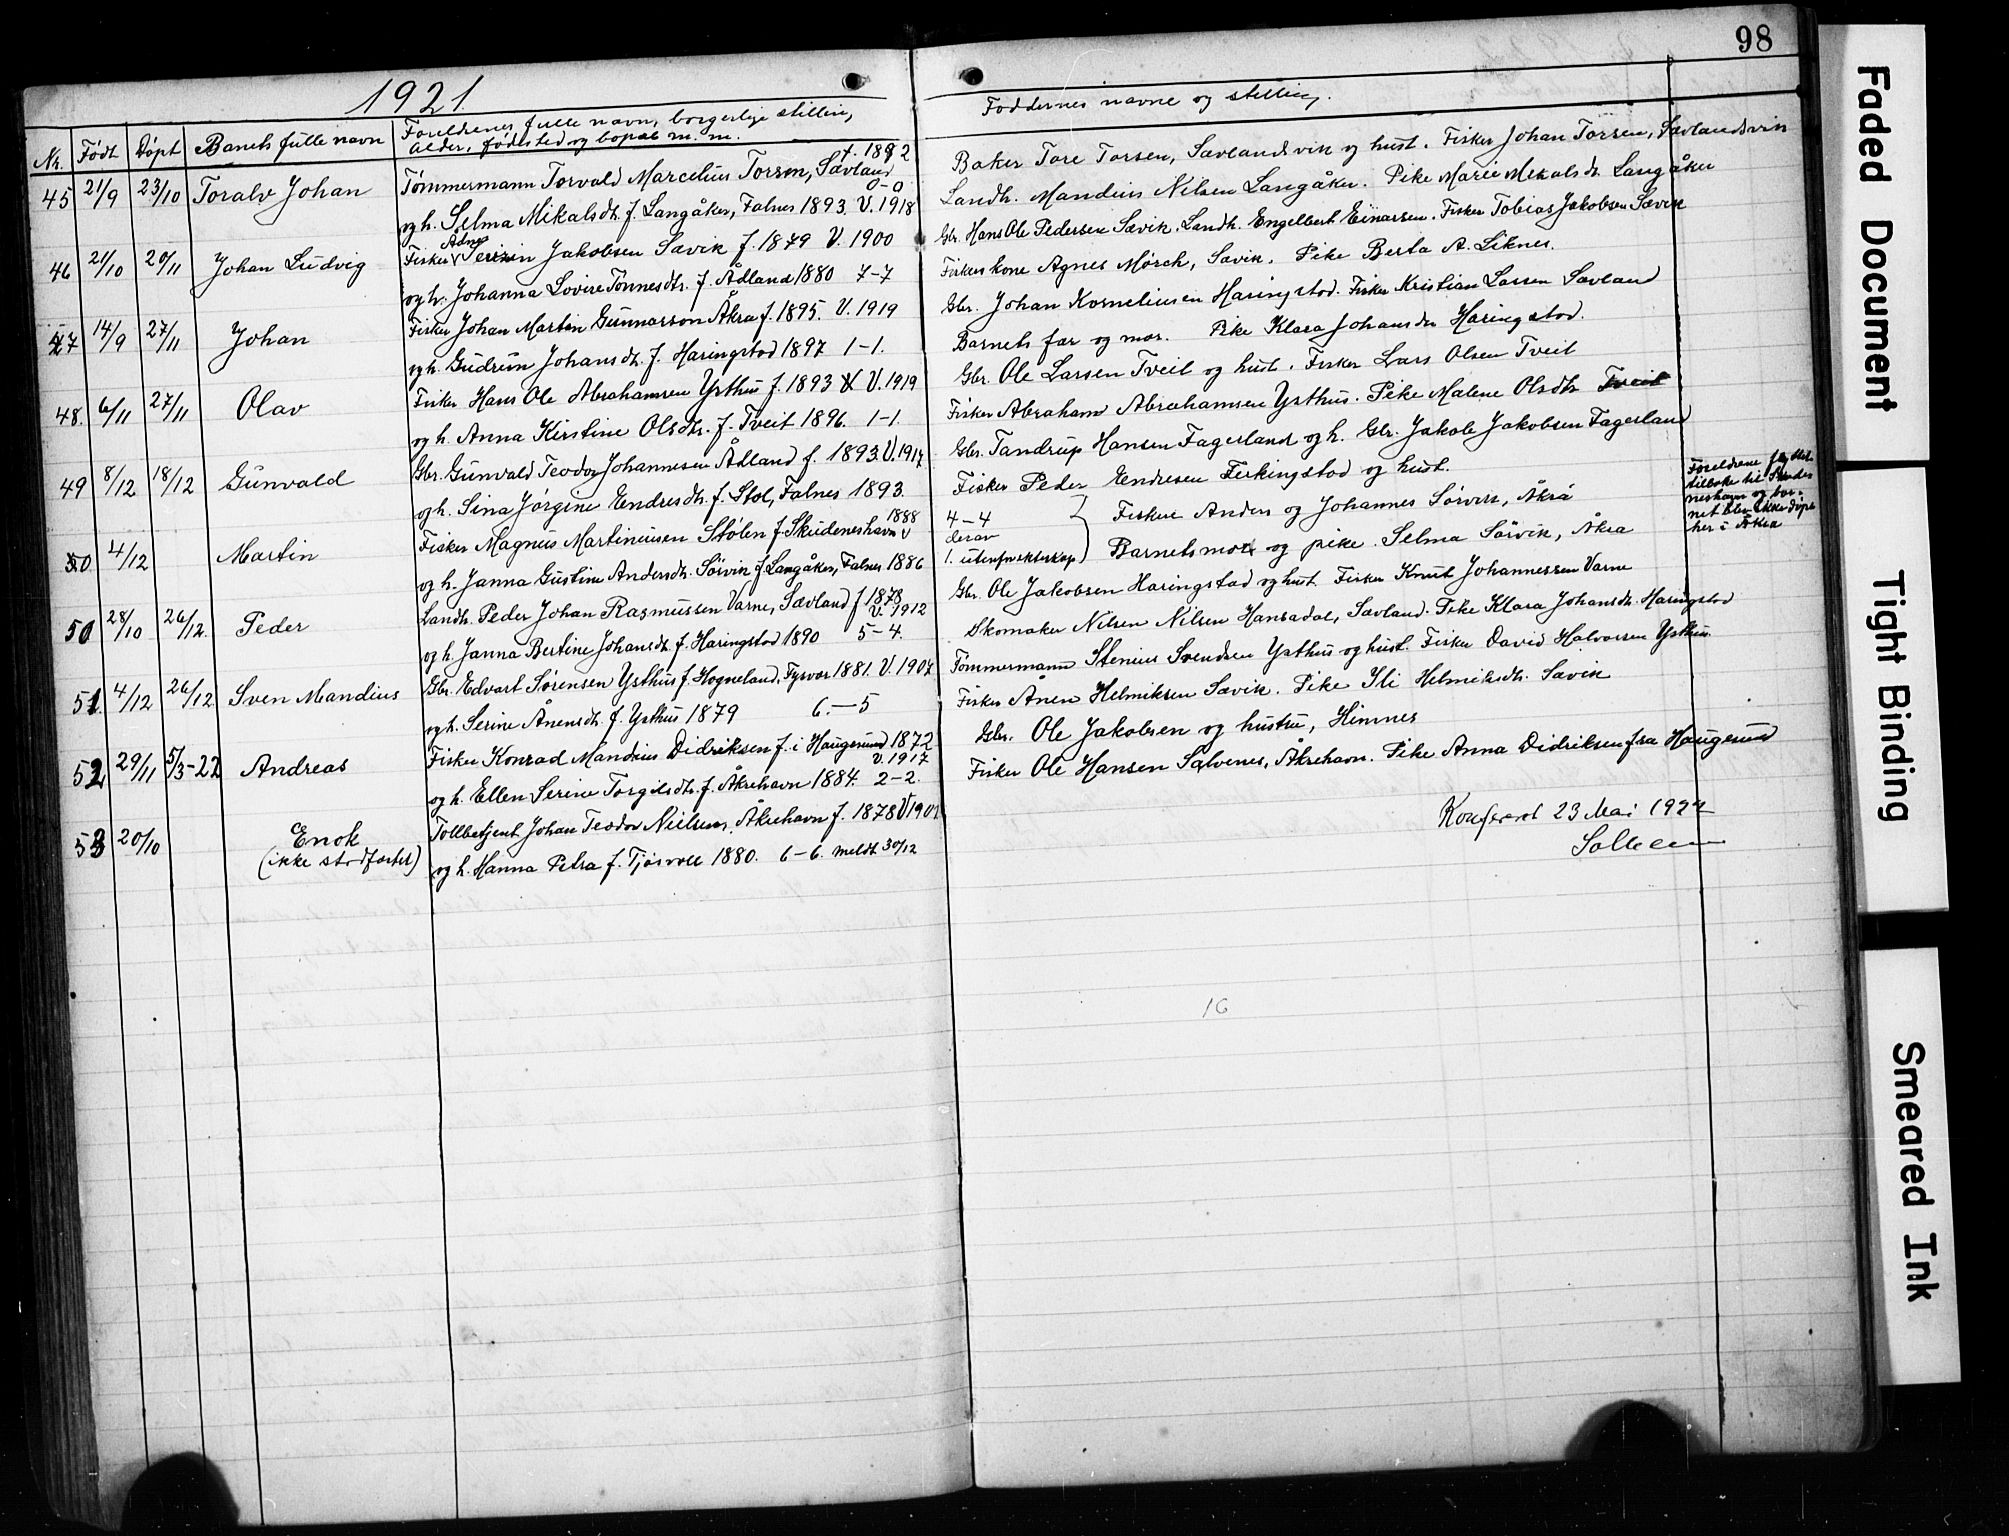 98
1921.
Nr. Født Døpt Barnets fulle navn Foreldrenes fulle navn, borgerlige stilling, alder, fødested og bopæl m. m.
Faddernes navne og stilling.
45 21/9 23/10 Toralv Johan
Tømmermann Torvald Marcelius Torsen, Sævland f. 1892
og h. Selma Mikalsdtr. f. Langåker, Falnes 1893. V. 1918 0-0
Baker Tore Torsen, Sævlandsvik og hust. Fisker Johan Torsen, Sævlandsvik
Landh. Mandius Nilsen Langåker. Pike Marie Mikalsdtr. Langåker
46 21/10 20/11 Johan Ludvig
Fisker Adne Jakobsen Sævik f. 1879 V. 1900
og h. Johanna Lovise Tønnesdtr. f. Ådland 1880 7-7
Gbr. Hans Ole Pedersen Sævik. Landh. Engelbert Einarsen. Fisker Tobias Jakobsen Sævik
Fiskers kone Agnes Mørch, Sævik. Pike Berta A. Liknes.
47 14/9 27/11 Johan
Fisker Johan Martin Gunnarson Åkra f. 1895. V. 1919
og h. Gudrun Johansdtr. f. Haringstad 1897 1-1.
Gbr. Johan Korneliusen Haringstad. Fisker Kristian Larsen Sævland
Barnets far og mor. Pike Klara Johansdtr Haringstad.
48. 6/11 27/11 Olav
Fisker Hans Ole Abrahamsen Ysthus f. 1893 V. 1919
og h. Anna Kirstine Olsdtr. f. Tveit 1896. 1-1.
Gbr. Ole Larsen Tveit og hust. Fisker Lars Olsen Tveit
Fisker Abraham Abrahamsen Ysthus. Pike Malene Olsdtr Tveit
49 8/12 18/12 Gunvald
Gbr. Gunvald Teodor Johannesen Ådland f. 1893. V. 1917
og h. Sina Jørgine Endresdtr. f. Stol, Falnes 1893.
Gbr. Tandrup Hansen Fagerland og h. Gbr. Jakob Jakobsen Fagerland
Fisker Peder Endresen Ferkingstad og hust.
50 4/12 Martin
Fisker Magnus Martinusen Stolen f. Skudeneshavn 1888
og h. Janna Gustine Andersdtr. Sörvik f. Langåker, Falnes 1886
4-4
derav
1. utenfor ekteskap)
Fiskere Anders og Johannes Sörvik, Åkra
Barnets mor og pike. Selma Sörvik, Åkra
Foreldrene flyttet tilbake til Skudeneshavn og barnet blev ikke döpt her i Åkra
50 28/10 26/12. Peder
Landh. Peder Johan Rasmussen Varne, Sævland f. 1878 V. 1912
og h. Janna Bertine Johansdtr. f. Haringstad 1890 5-4.
Gbr. Ole Jakobsen Haringstad og hust. Fisker Knut Johannessen Varne
Skomaker Nilsen Nilsen Hansadal, Sævland. Pike Klara Johansdtr. Haringstad
51. 4/12 26/12 Sven Mandius
Gbr. Edvart Sørensen Ysthus f. Hogneland, Tysvær 1881. V. 1907
og h. Serine Ånensdtr. f. Ysthus 1879 6.-5
Tømmermann Stenius Svendsen Ysthus og hust. Fisker David Halvorsen Ysthus
Fisker Ånen Helmiksen Sævik. Pike Ili Helmiksdtr. Sævik
52 29/11 5/3-22 Andreas
Fisker Konrad Mandius Didriksen f. i Haugesund 1872 V. 1917
og h. Ellen Serine Torgilsdtr. f. Åkrehavn 1884. 2-2.
Gbr. Ole Jakobsen og hustru, Hinnes
Fisker Ole Hansen Salvenes, Åkrehavn. Pike Anna Didriksen fra Haugesund
53 20/10 Enok
(ikke stadfæstet)
Tollbetjent Johan Teodor Nielsen, Åkrehavn f. 1878 V 1901
og h. Hanna Petra f. Tjøsvoll 1880. 6-6. meldt 30/12
Konferert 23 Mai 1922
Solheim
16
Faded Document
Tight Binding
Smeared Ink